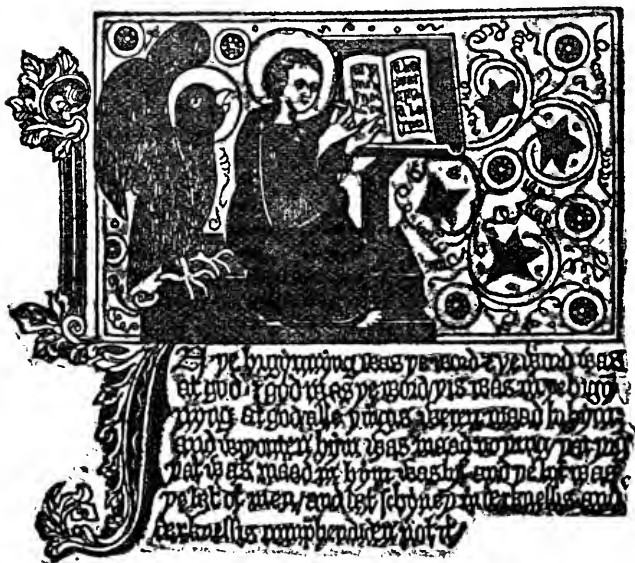 N ye bigynnyng was ye word & ye word was
at god & god was ye word yis was in ye bigyn
nyng at god alle yingis weren maad bi hym
and wiyouten hym was maad no ying yat
yat was maad in hym was lyf and ye lyf was
ye liȝt of men / and liȝt schyney in derknessis and
derknessis comprehendiden not it